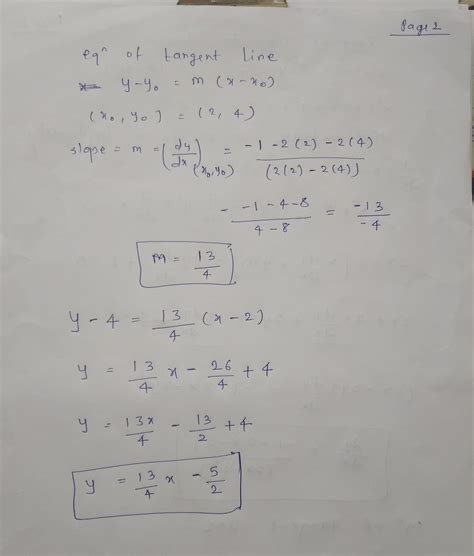 Page 2
eqⁿ of tangent line
y-y₀ = m (x-x₀)
(x₀, y₀) = (2, 4)
slope = m = (dy/dx)(x₀,y₀) = -1-2(2)-2(4) / (2(2)-2(4))
- -1-4-8 / 4-8 = -13 / -4
m = 13/4
y-4 = 13/4 (x-2)
y = 13/4 x - 26/4 + 4
y = 13x/4 - 13/2 + 4
y = 13/4 x - 5/2